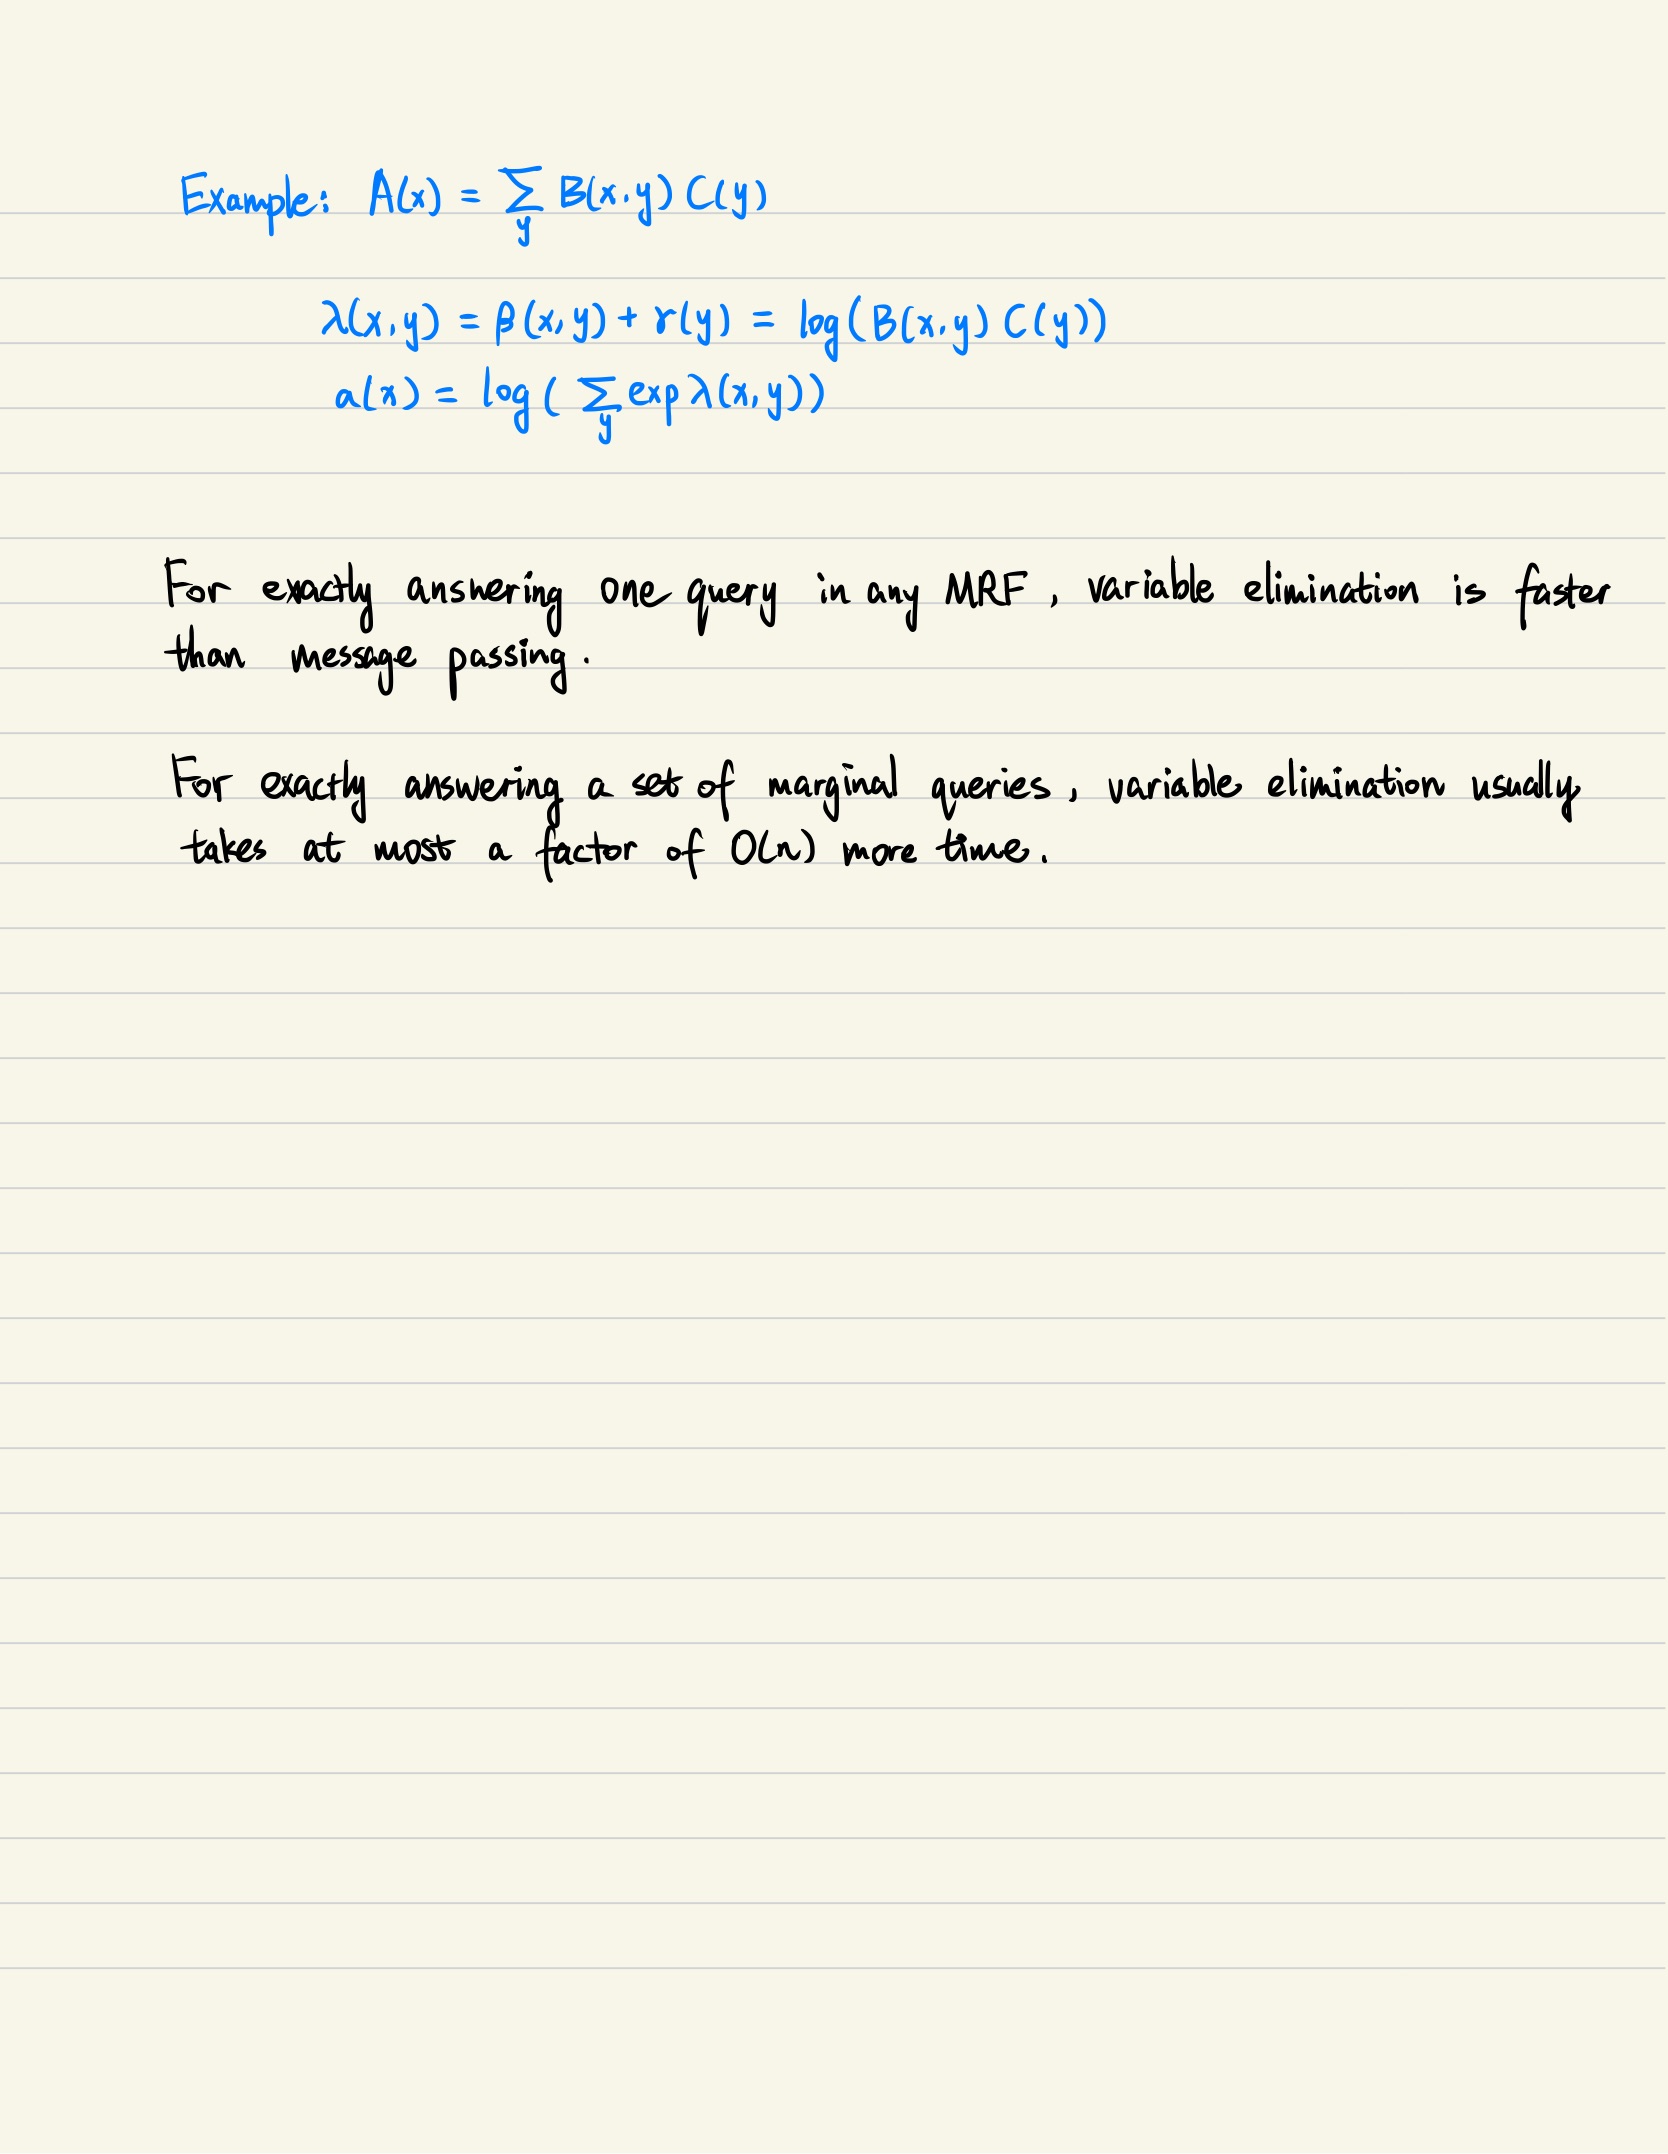 Example: A(x) = ∑_y B(x,y) C(y)
λ(x,y) = β(x,y) + γ(y) = log(B(x,y) C(y))
a(x) = log(∑_y exp λ(x,y))
For exactly answering one query in any MRF, variable elimination is faster
than message passing.
For exactly answering a set of marginal queries, variable elimination usually
takes at most a factor of O(n) more time.